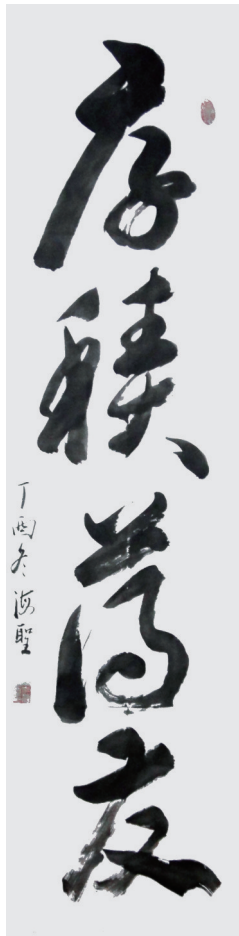 厚積薄发
丁酉冬海聖